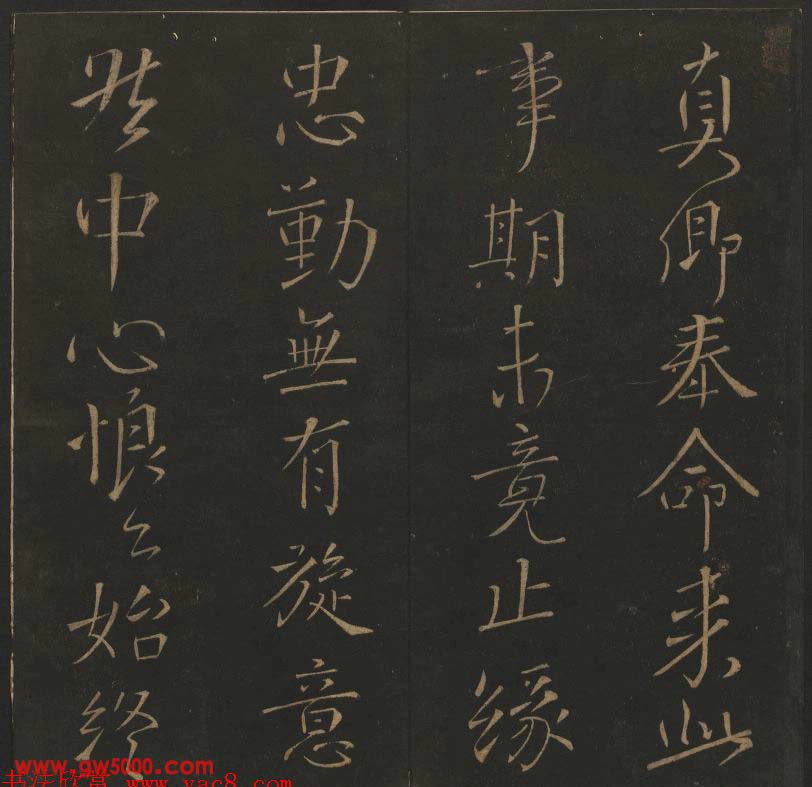 真卿奉命来此
事期未竟止緣
忠勤無有旋意
然中心悢々始終
www.gw5000.com
书法欣赏 www.yac8.com